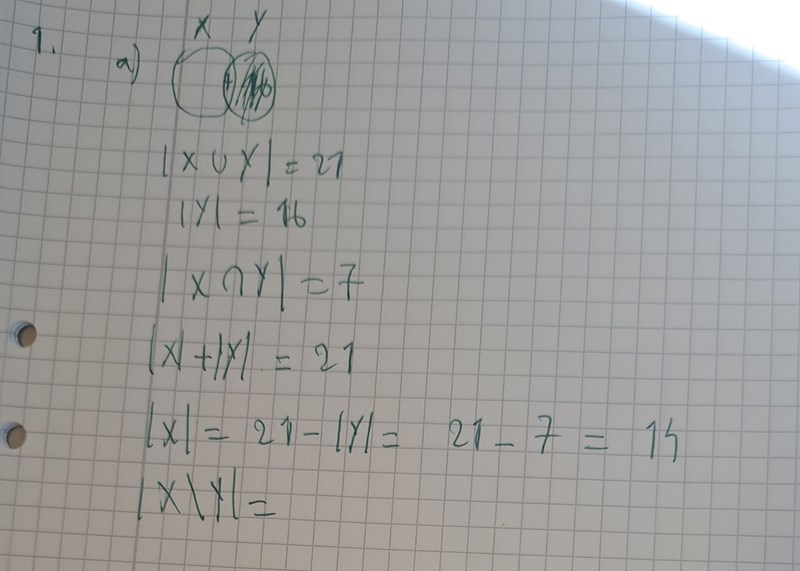 1. a) X Y
|X ∪ Y| = 21
|Y| = 16
|X ∩ Y| = 7
|X|+|Y| = 21
|X| = 21 - |Y| = 21 - 7 = 14
|X \ Y| =